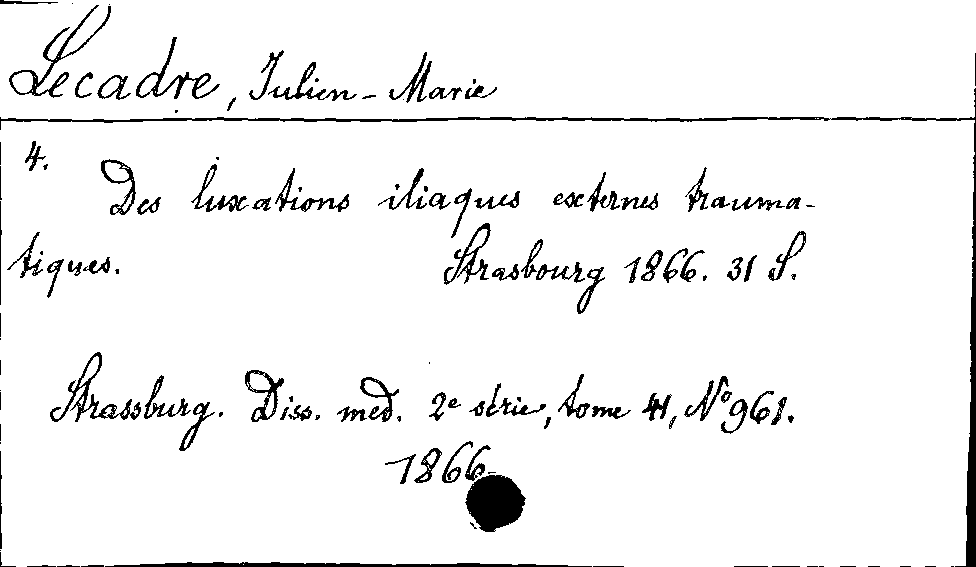 Lecadre, Julien-Marie
4.
Des luxations iliaques externes trauma-
tiques. Strasbourg 1866. 31 S.
Strassburg. Diss. med. 2e série, tome 41, No 961.
1866